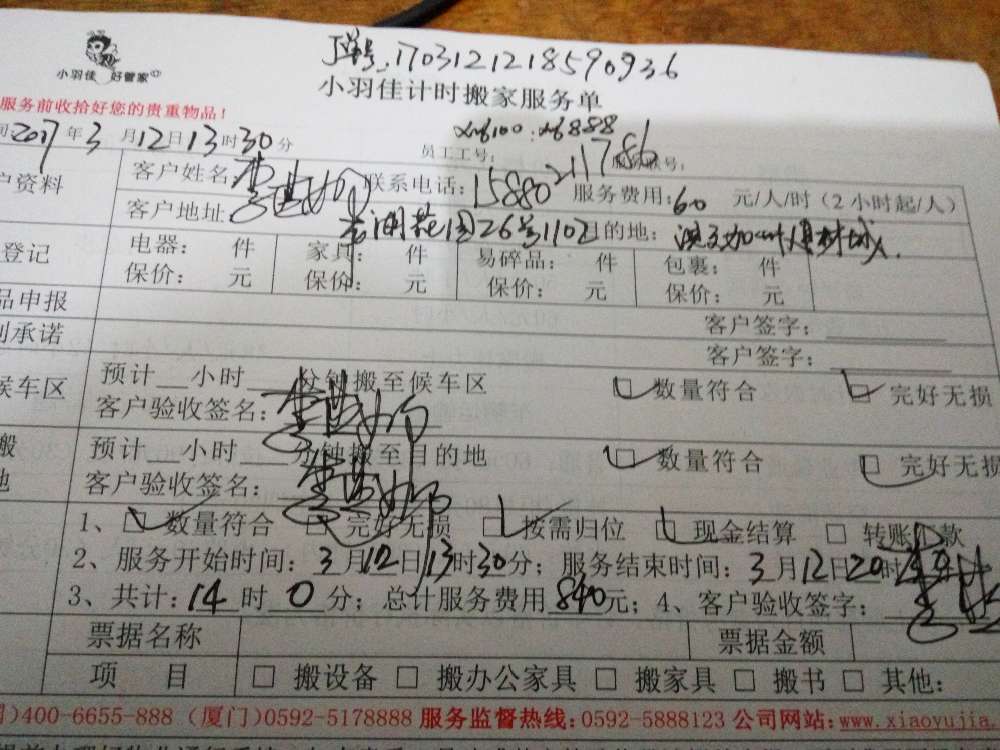 订单号:170312121859093​6
小羽佳 好管家
小羽佳计时搬家服务单
服务前收拾好您的贵重物品！
间2017年3月12日13时30分
员工工号: xm6100.xm6888
户资料 客户姓名: 联系电话:15880211786 服务费用:60元/人/时（2小时起/人）
客户地址: 花园26号1102目的地:
登记 电器: 件 家具: 件 易碎品: 件 包裹: 件
保价: 元 保价: 元 保价: 元 保价: 元
品申报 客户签字:
列承诺 客户签字:
候车区 预计__小时__分钟搬至候车区 □数量符合 □完好无损
客户验收签名:
搬 预计__小时__分钟搬至目的地 □数量符合 □完好无损
地 客户验收签名:
1、□数量符合 □完好无损 □按需归位 □现金结算 □转账付款
2、服务开始时间:3月12日13时30分；服务结束时间:3月12日20时
3、共计:14时0分；总计服务费用840元；4、客户验收签字:
票据名称 票据金额
项目 □搬设备 □搬办公家具 □搬家具 □搬书 □其他:
)400-6655-888 (厦门)0592-5178888 服务监督热线:0592-5888123 公司网站:www.xiaoyujia.